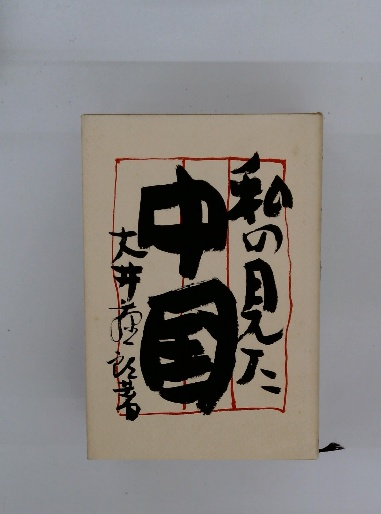 私の見た
中国
大井 郎著